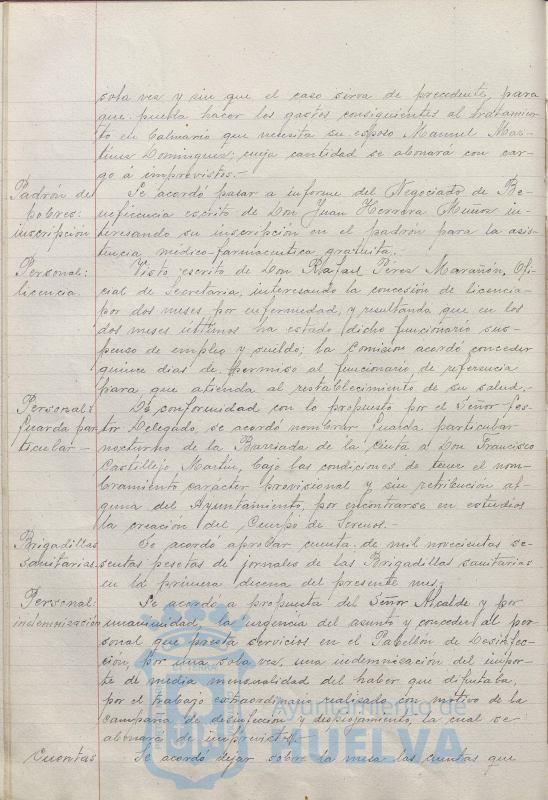 sola vez y sin que el caso sirva de precedente, para
que pueda hacer los gastos consiguientes al tratamien-
to en Balneario que necesita su esposo Manuel Mar-
tínez Domínguez; cuya cantidad se abonará con car-
go a imprevistos.-
Padrón de
pobres:
inscripción
Se acordó pasar a informe del Negociado de Be-
neficencia escrito de Don Juan Herrera Muñoz in-
teresando su inscripción en el padrón para la asis-
tencia médico-farmacéutica gratuita.
Personal:
licencia
Visto escrito de Don Rafael Pérez Marañón, Ofi-
cial de Secretaría, interesando la concesión de licencia
por dos meses, por enfermedad; y resultando que en los
dos meses últimos ha estado dicho funcionario sus-
penso de empleo y sueldo; la Comisión acordó conceder
quince días de permiso al funcionario de referencia
para que atienda al restablecimiento de su salud.-
Personal:
Guarda par-
ticular-
De conformidad con lo propuesto por el Señor Ges-
tor Delegado, se acordó nombrar Guarda particular
nocturno de la Barriada de la Cinta a Don Francisco
Castillejo Martín, bajo las condiciones de tener el nom-
bramiento carácter provisional y sin retribución al-
guna del Ayuntamiento, por encontrarse en estudios
la creación del Cuerpo de Serenos.-
Brigadillas
sanitarias
Se acordó aprobar cuenta de mil novecientas se-
sentas pesetas de jornales de las Brigadillas sanitarias
en la primera decena del presente mes.
Personal:
indemnización
Se acordó a propuesta del Señor Alcalde y por
unanimidad, la urgencia del asunto y conceder al per-
sonal que presta servicios en el Pabellón de Desinfec-
ción, por una sola vez, una indemnización del impor-
te de media mensualidad del haber que disfrutaba,
por el trabajo extraordinario realizado con motivo de la
campaña de desinfección y despiojamiento, la cual se
abonará de imprevistos.-
Cuentas
Se acordó dejar sobre la mesa las cuentas que
Ayuntamiento de
HUELVA